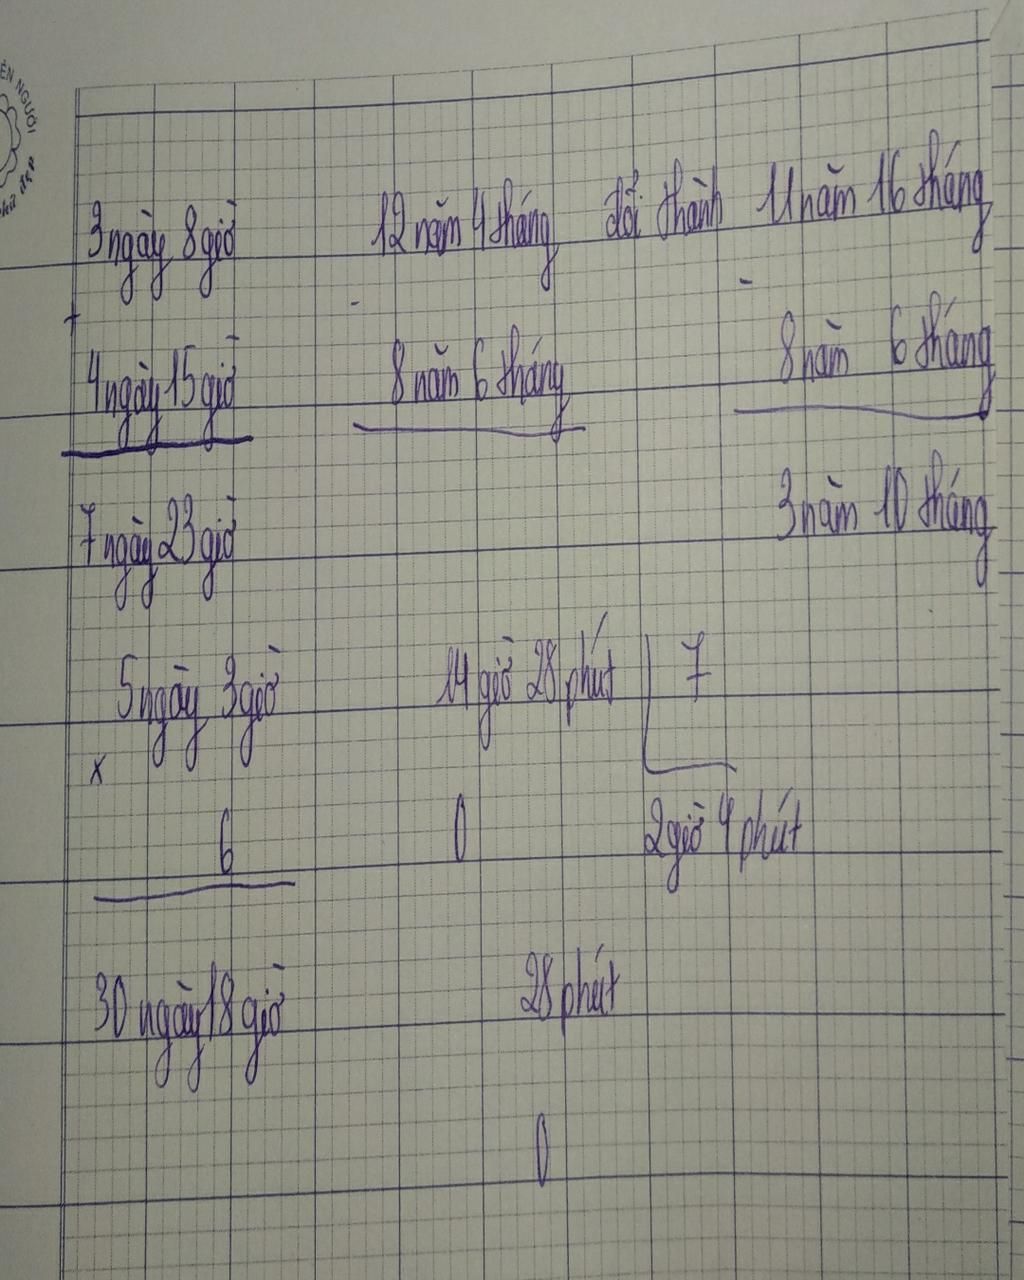 ÊN NGƯỜI
chữ đẹp
3 ngày 8 giờ 12 năm 4 tháng đổi thành 11 năm 16 tháng
+ - -
4 ngày 15 giờ 8 năm 6 tháng 8 năm 6 tháng
7 ngày 23 giờ 3 năm 10 tháng
5 ngày 3 giờ 14 giờ 28 phút 7
x
6 0 2 giờ 4 phút
30 ngày 18 giờ 28 phút
0